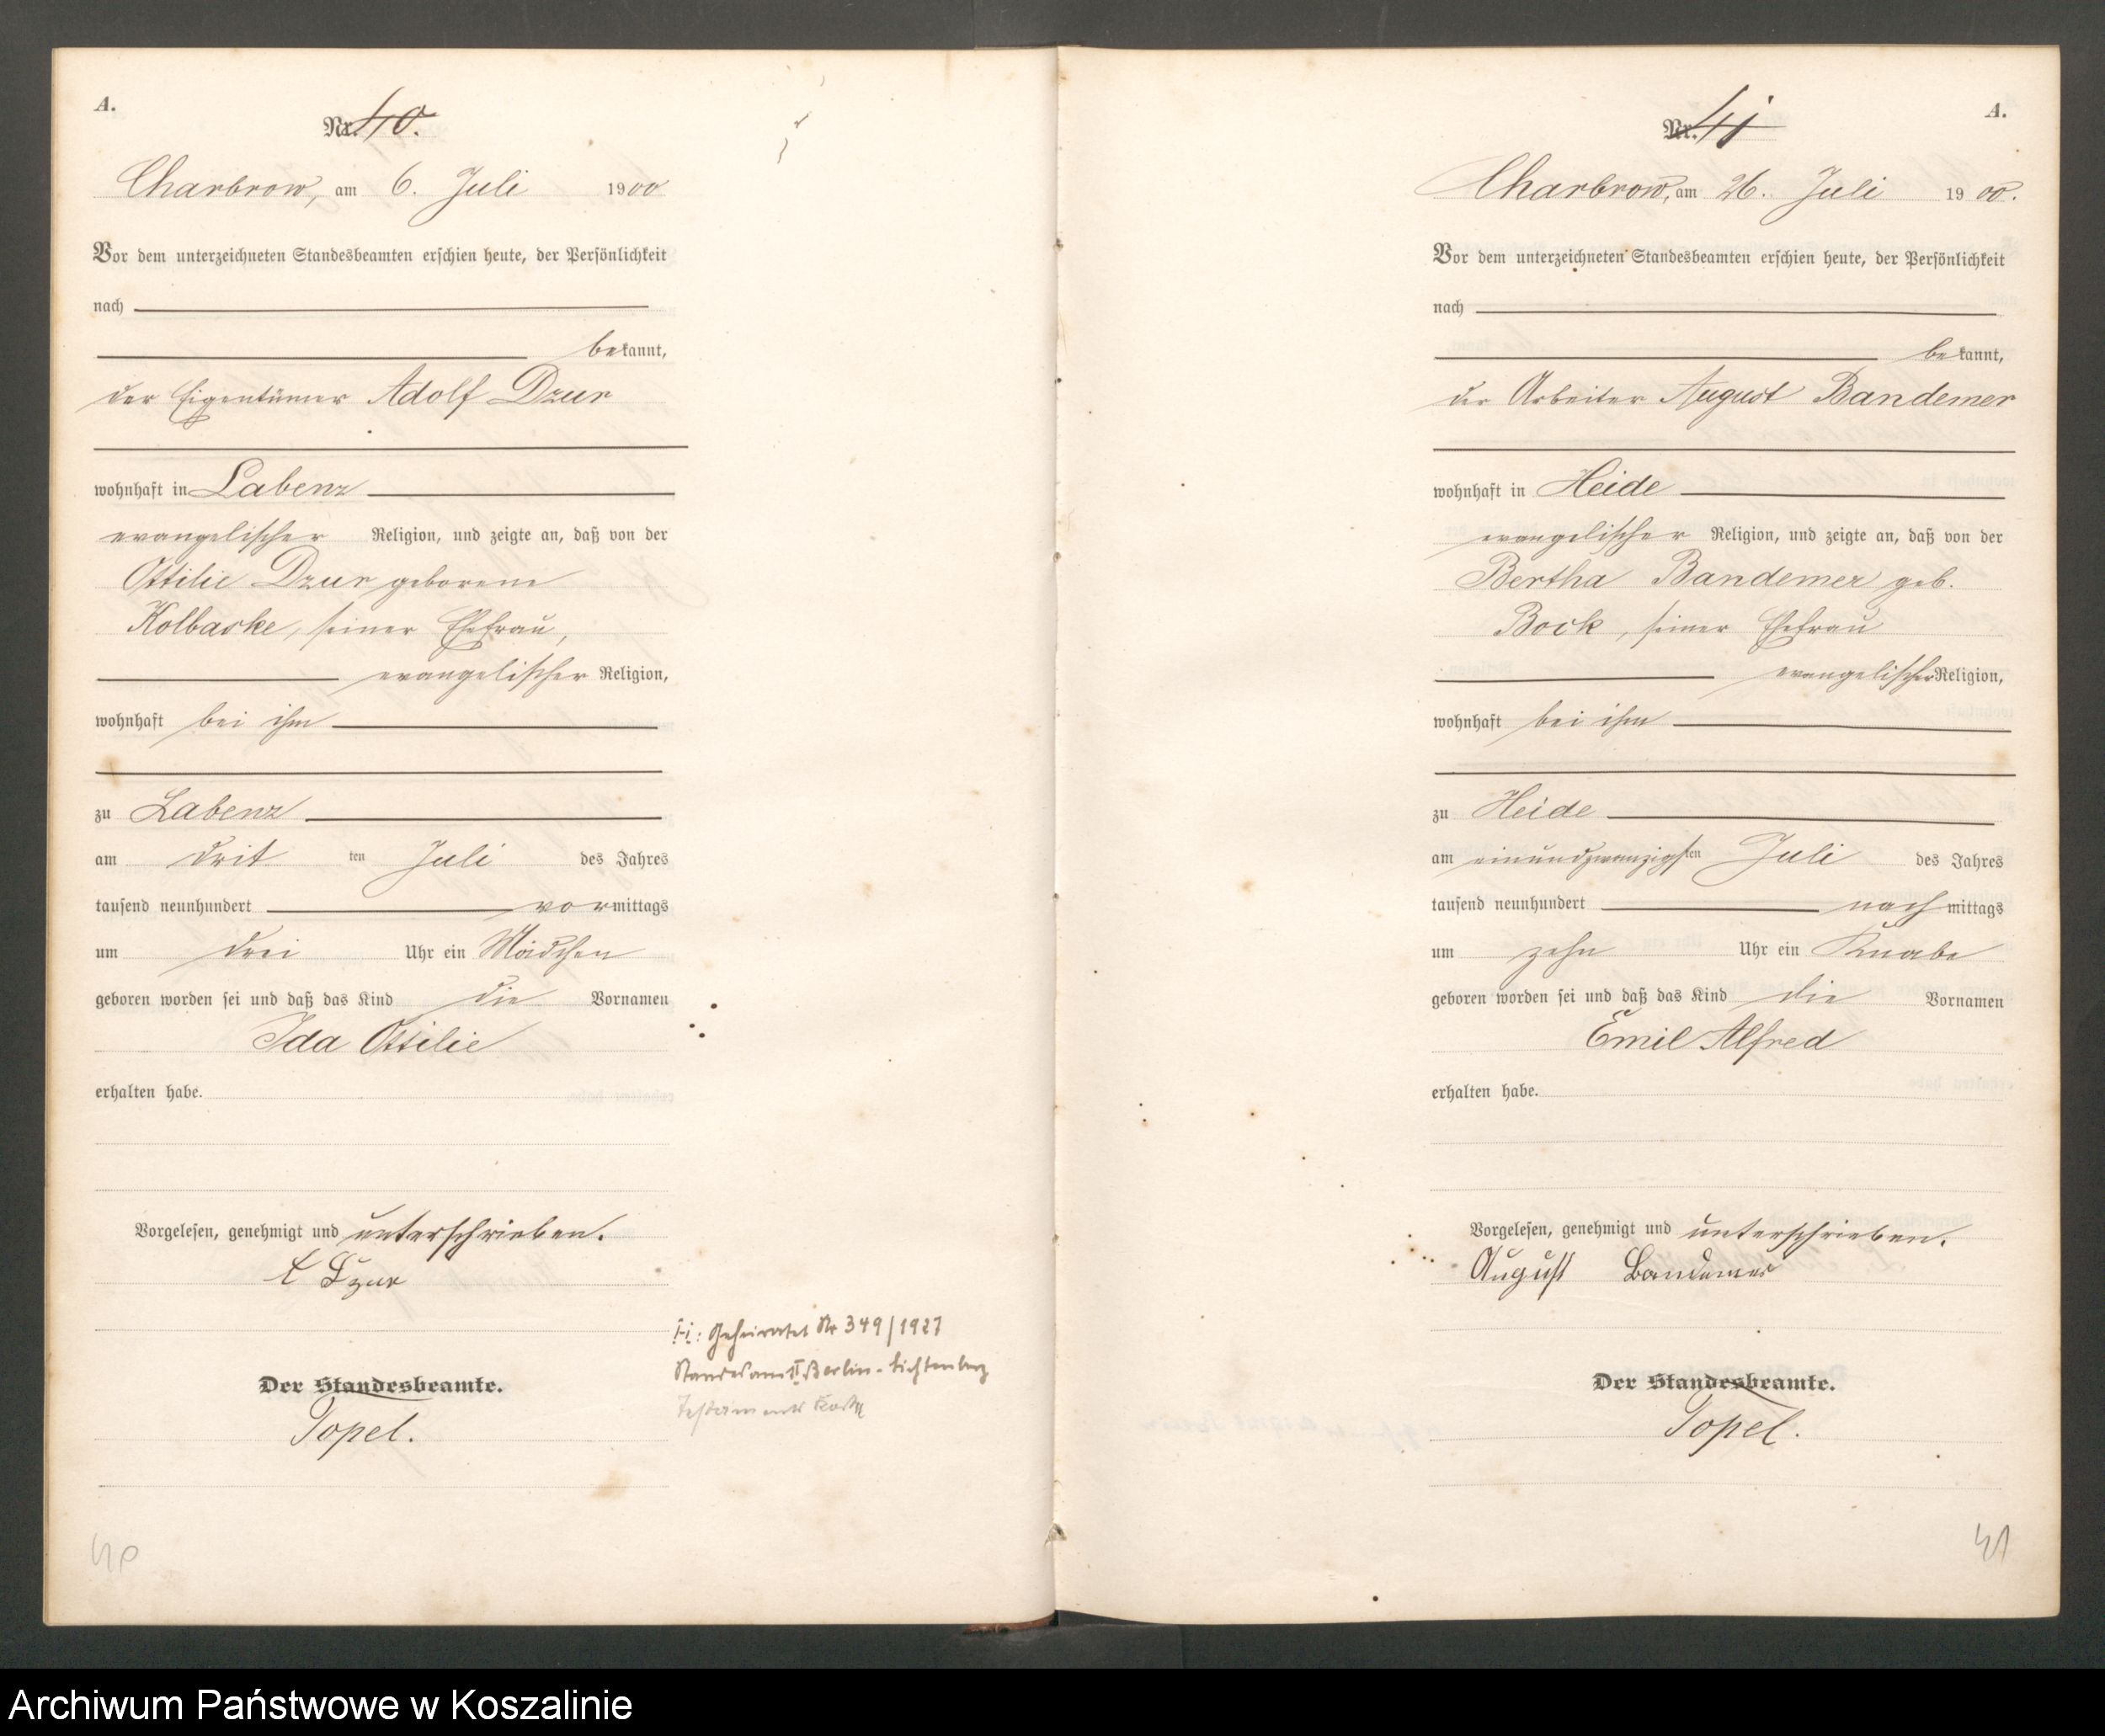 A.
Nr. 40.
Charbrow, am 6. Juli 1900
Vor dem unterzeichneten Standesbeamten erschien heute, der Persönlichkeit
nach
bekannt,
der Eigentümer Adolf Dzur
wohnhaft in Labenz
evangelischer Religion, und zeigte an, daß von der
Ottilie Dzur geborene
Kolbaske, seiner Ehefrau,
evangelischer Religion,
wohnhaft bei ihm
zu Labenz
am dritten Juli des Jahres
tausend neunhundert vormittags
um drei Uhr ein Mädchen
geboren worden sei und daß das Kind die Vornamen
Ida Ottilie
erhalten habe.
Vorgelesen, genehmigt und unterschrieben.
A Dzur
H: Geheiratet Nr 349/1927
Standesamt II Berlin-Lichtenberg
Der Standesbeamte.
Topel.
40
A.
Nr. 41
Charbrow, am 26. Juli 1900.
Vor dem unterzeichneten Standesbeamten erschien heute, der Persönlichkeit
nach
bekannt,
der Arbeiter August Bandemer
wohnhaft in Heide
evangelischer Religion, und zeigte an, daß von der
Bertha Bandemer geb.
Bock, seiner Ehefrau
evangelischer Religion,
wohnhaft bei ihm
zu Heide
am einundzwanzigsten Juli des Jahres
tausend neunhundert nachmittags
um zehn Uhr ein Knabe
geboren worden sei und daß das Kind die Vornamen
Emil Alfred
erhalten habe.
Vorgelesen, genehmigt und unterschrieben.
August Bandemer
Der Standesbeamte.
Topel.
41
Archiwum Państwowe w Koszalinie